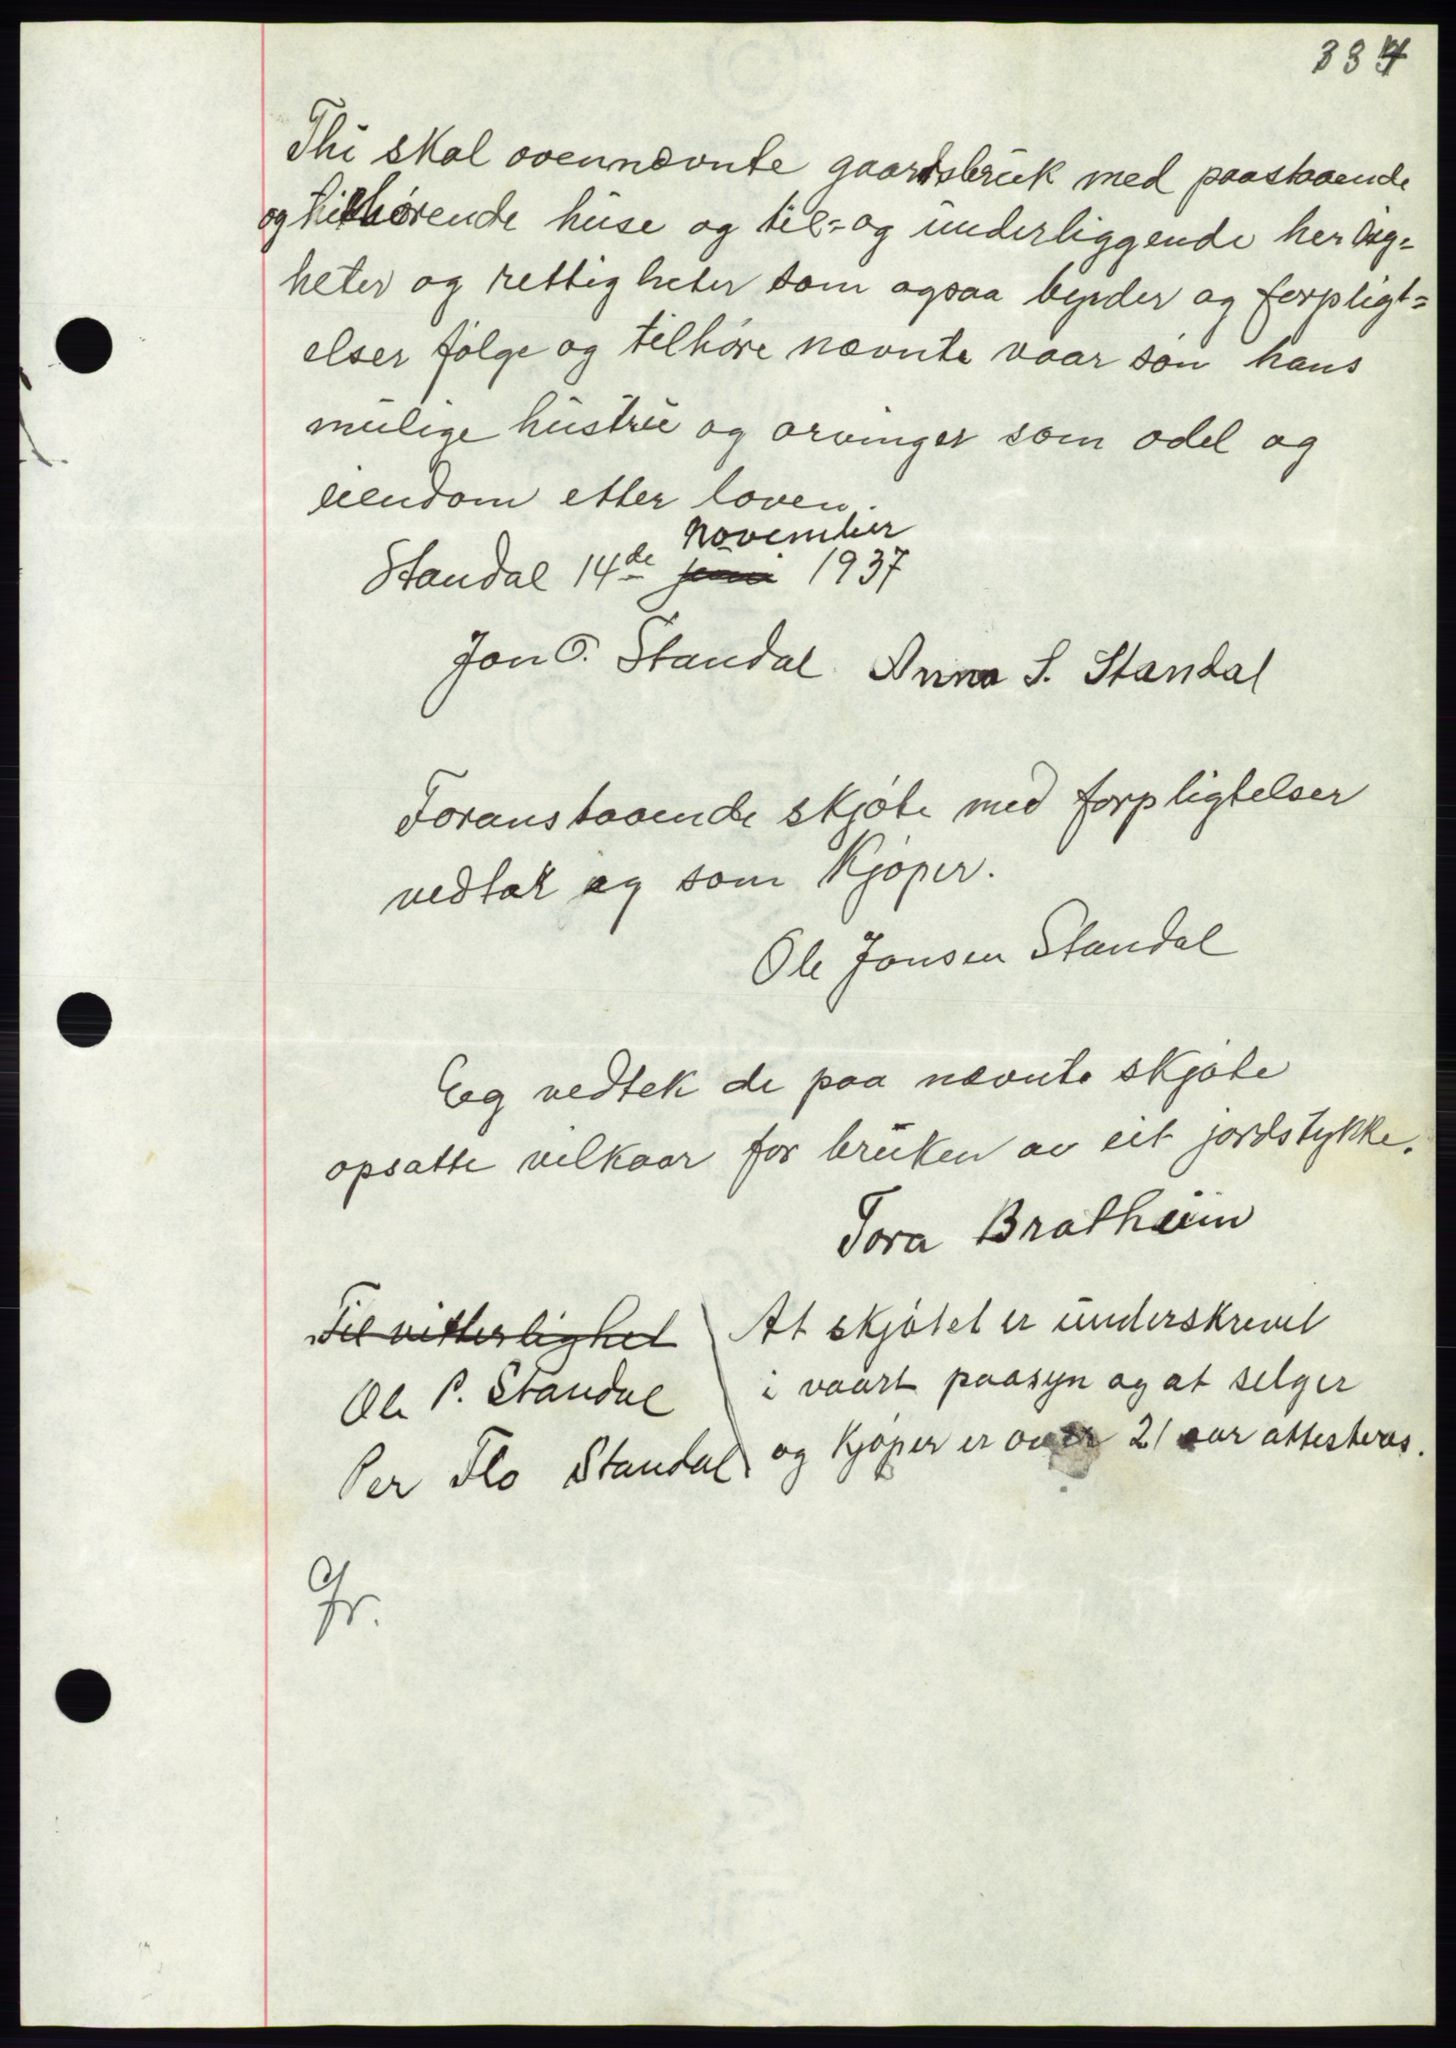 334
Thi skal ovennævnte gaardsbruk med paastaaende
og tilhørende huse og til= og underliggende herlig=
heter og rettigheter som ogsaa byrder og forpligt=
elser følge og tilhøre nævnte vaar søn hans
mulige hustru og arvinger som odel og
eiendom etter loven.
november
Standal 14de juni 1937
Jon O. Standal Anna S. Standal
Foranstaaende skjøte med forpligtelser
vedtar eg som Kjøper.
Ole Jonsen Standal
Eg vedtek de paa nævnte skjøte
opsatte vilkaar for bruken av eit jordstykke.
Tora Bratheim
Til vitterlighet
Ole P. Standal
Per Flo Standal
At skjøtet er underskrevet
i vaart paasyn og at selger
og Kjøper er over 21 aar attesteras.